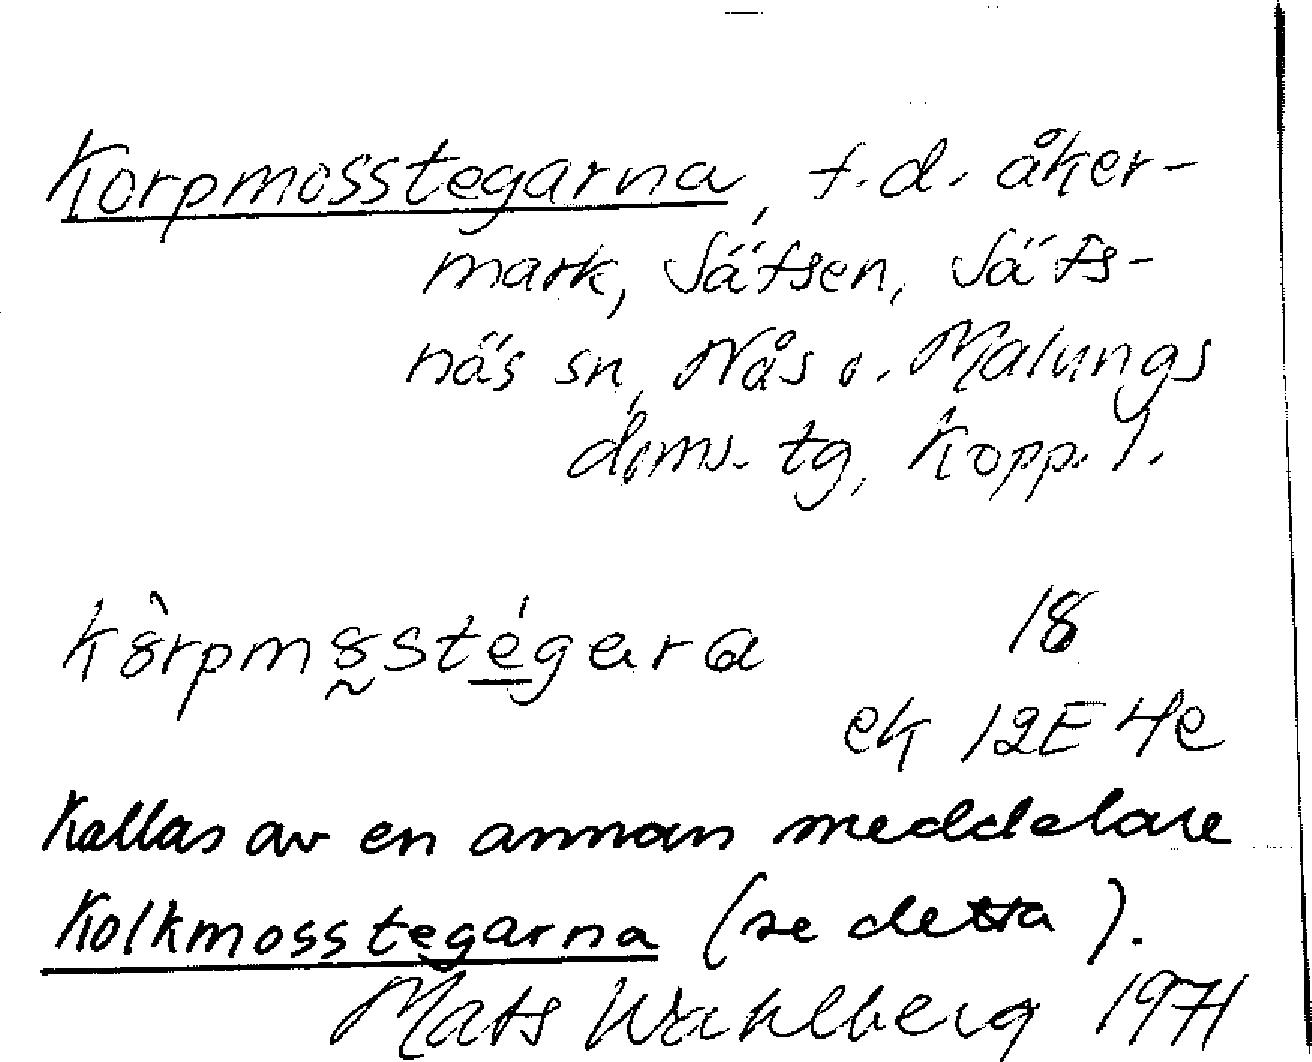 Korpmosstegarna, f.d. åker-
mark, Sätsen, Säfs-
näs sn, Nås o. Malungs
doms. tg, Kopp. l.
18
ek 12E 4e
Kallas av en annan meddelare
Kolkmosstegarna (se detta).
Mats Wahlberg 1971